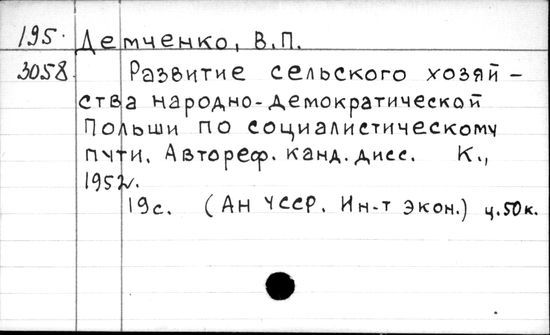 195. Демченко, В.П.
3058. Развитие сельского хозяй-
ства народно-демократической
Польши по социалистическому
пути. Автореф. канд. дисс. К.,
1952.
19с. (АН УССР. Ин-т экон.) ц.50к.